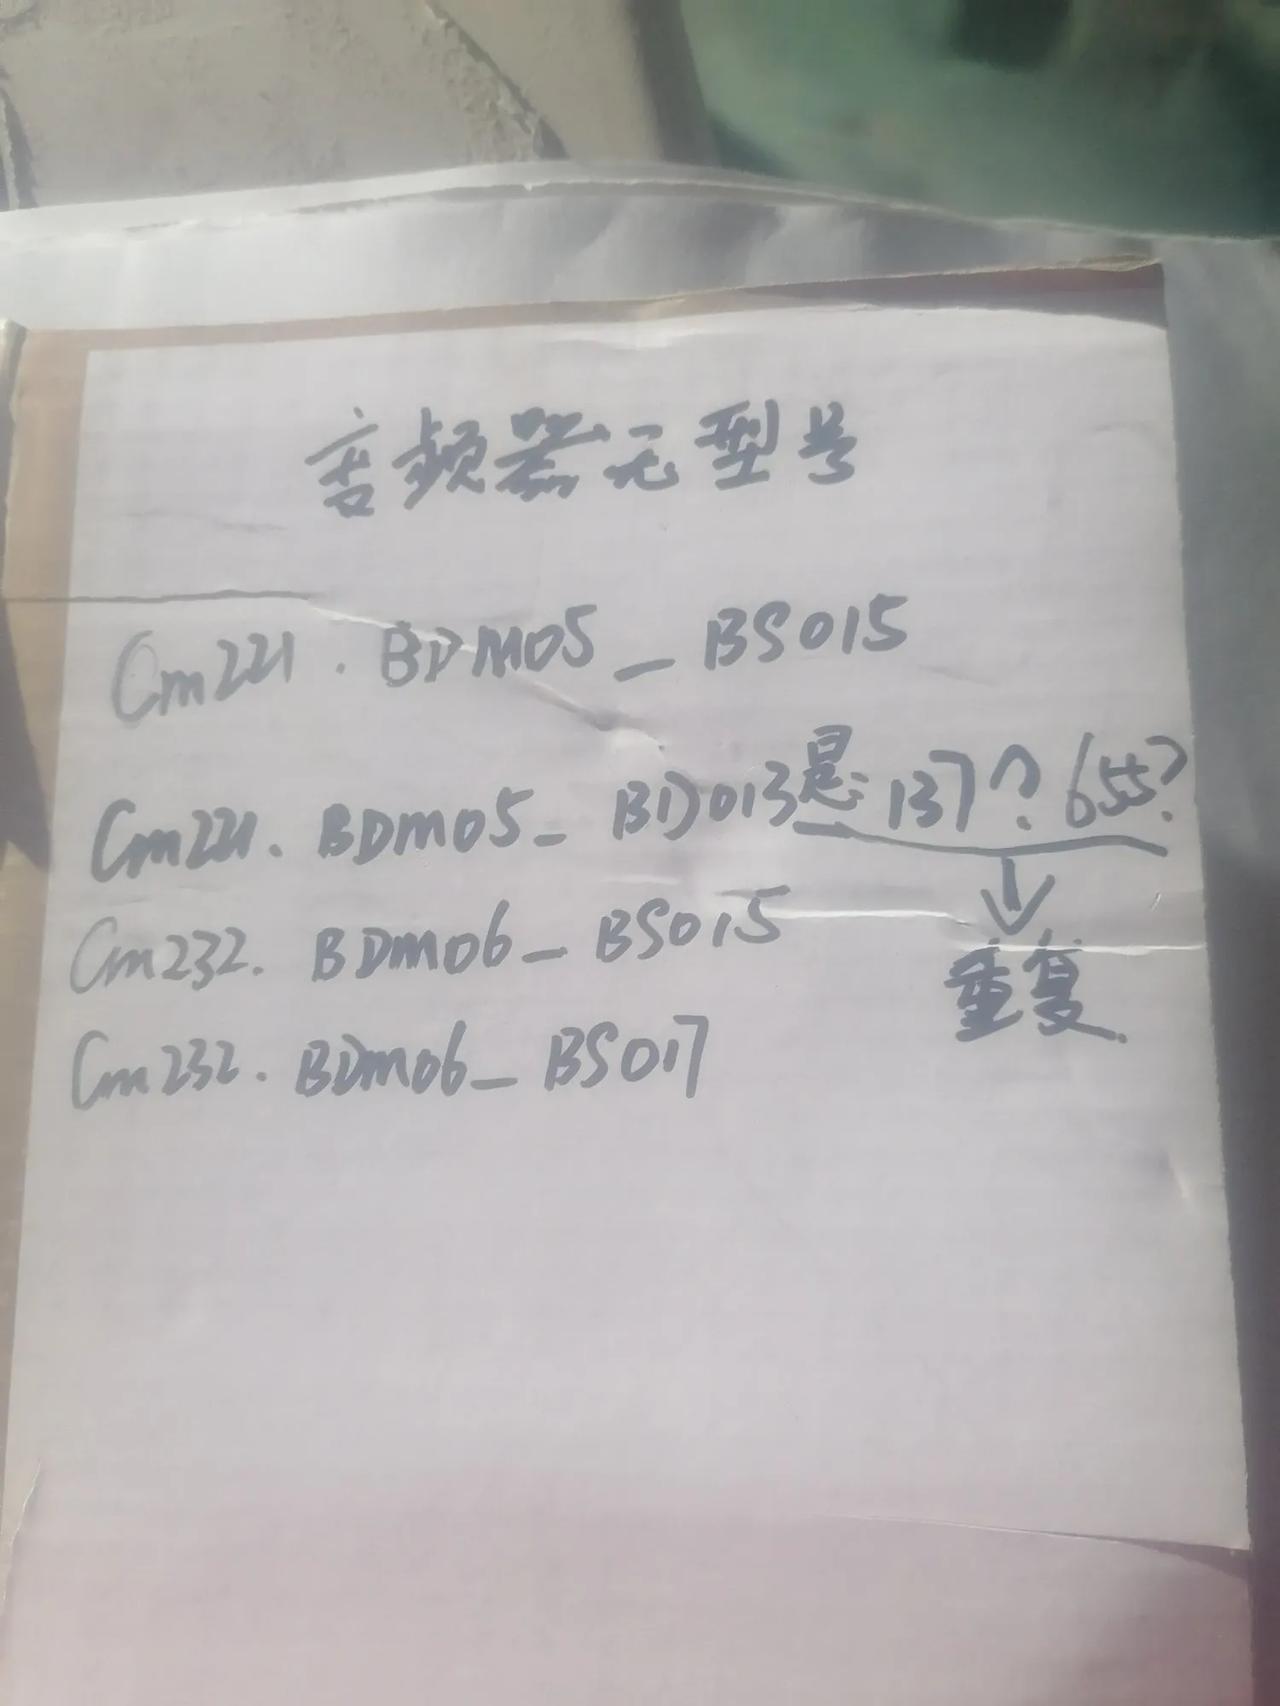 音频器无型号
Cm221. BDM05_BS015
Cm221. BDM05_BD013是137?655?
Cm232. BDM06_BS015
重复
Cm232. BDM06_BS017